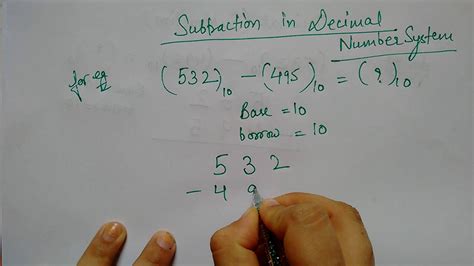 Subtraction in Decimal
Number System
for eg (532)₁₀ - (495)₁₀ = (?)₁₀
Base = 10
borrow = 10
5 3 2
- 4 9